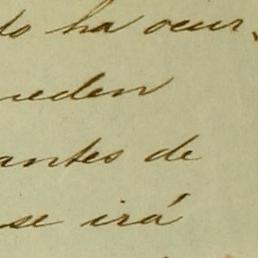 do ha ocur-
ueden
antes de
se irá